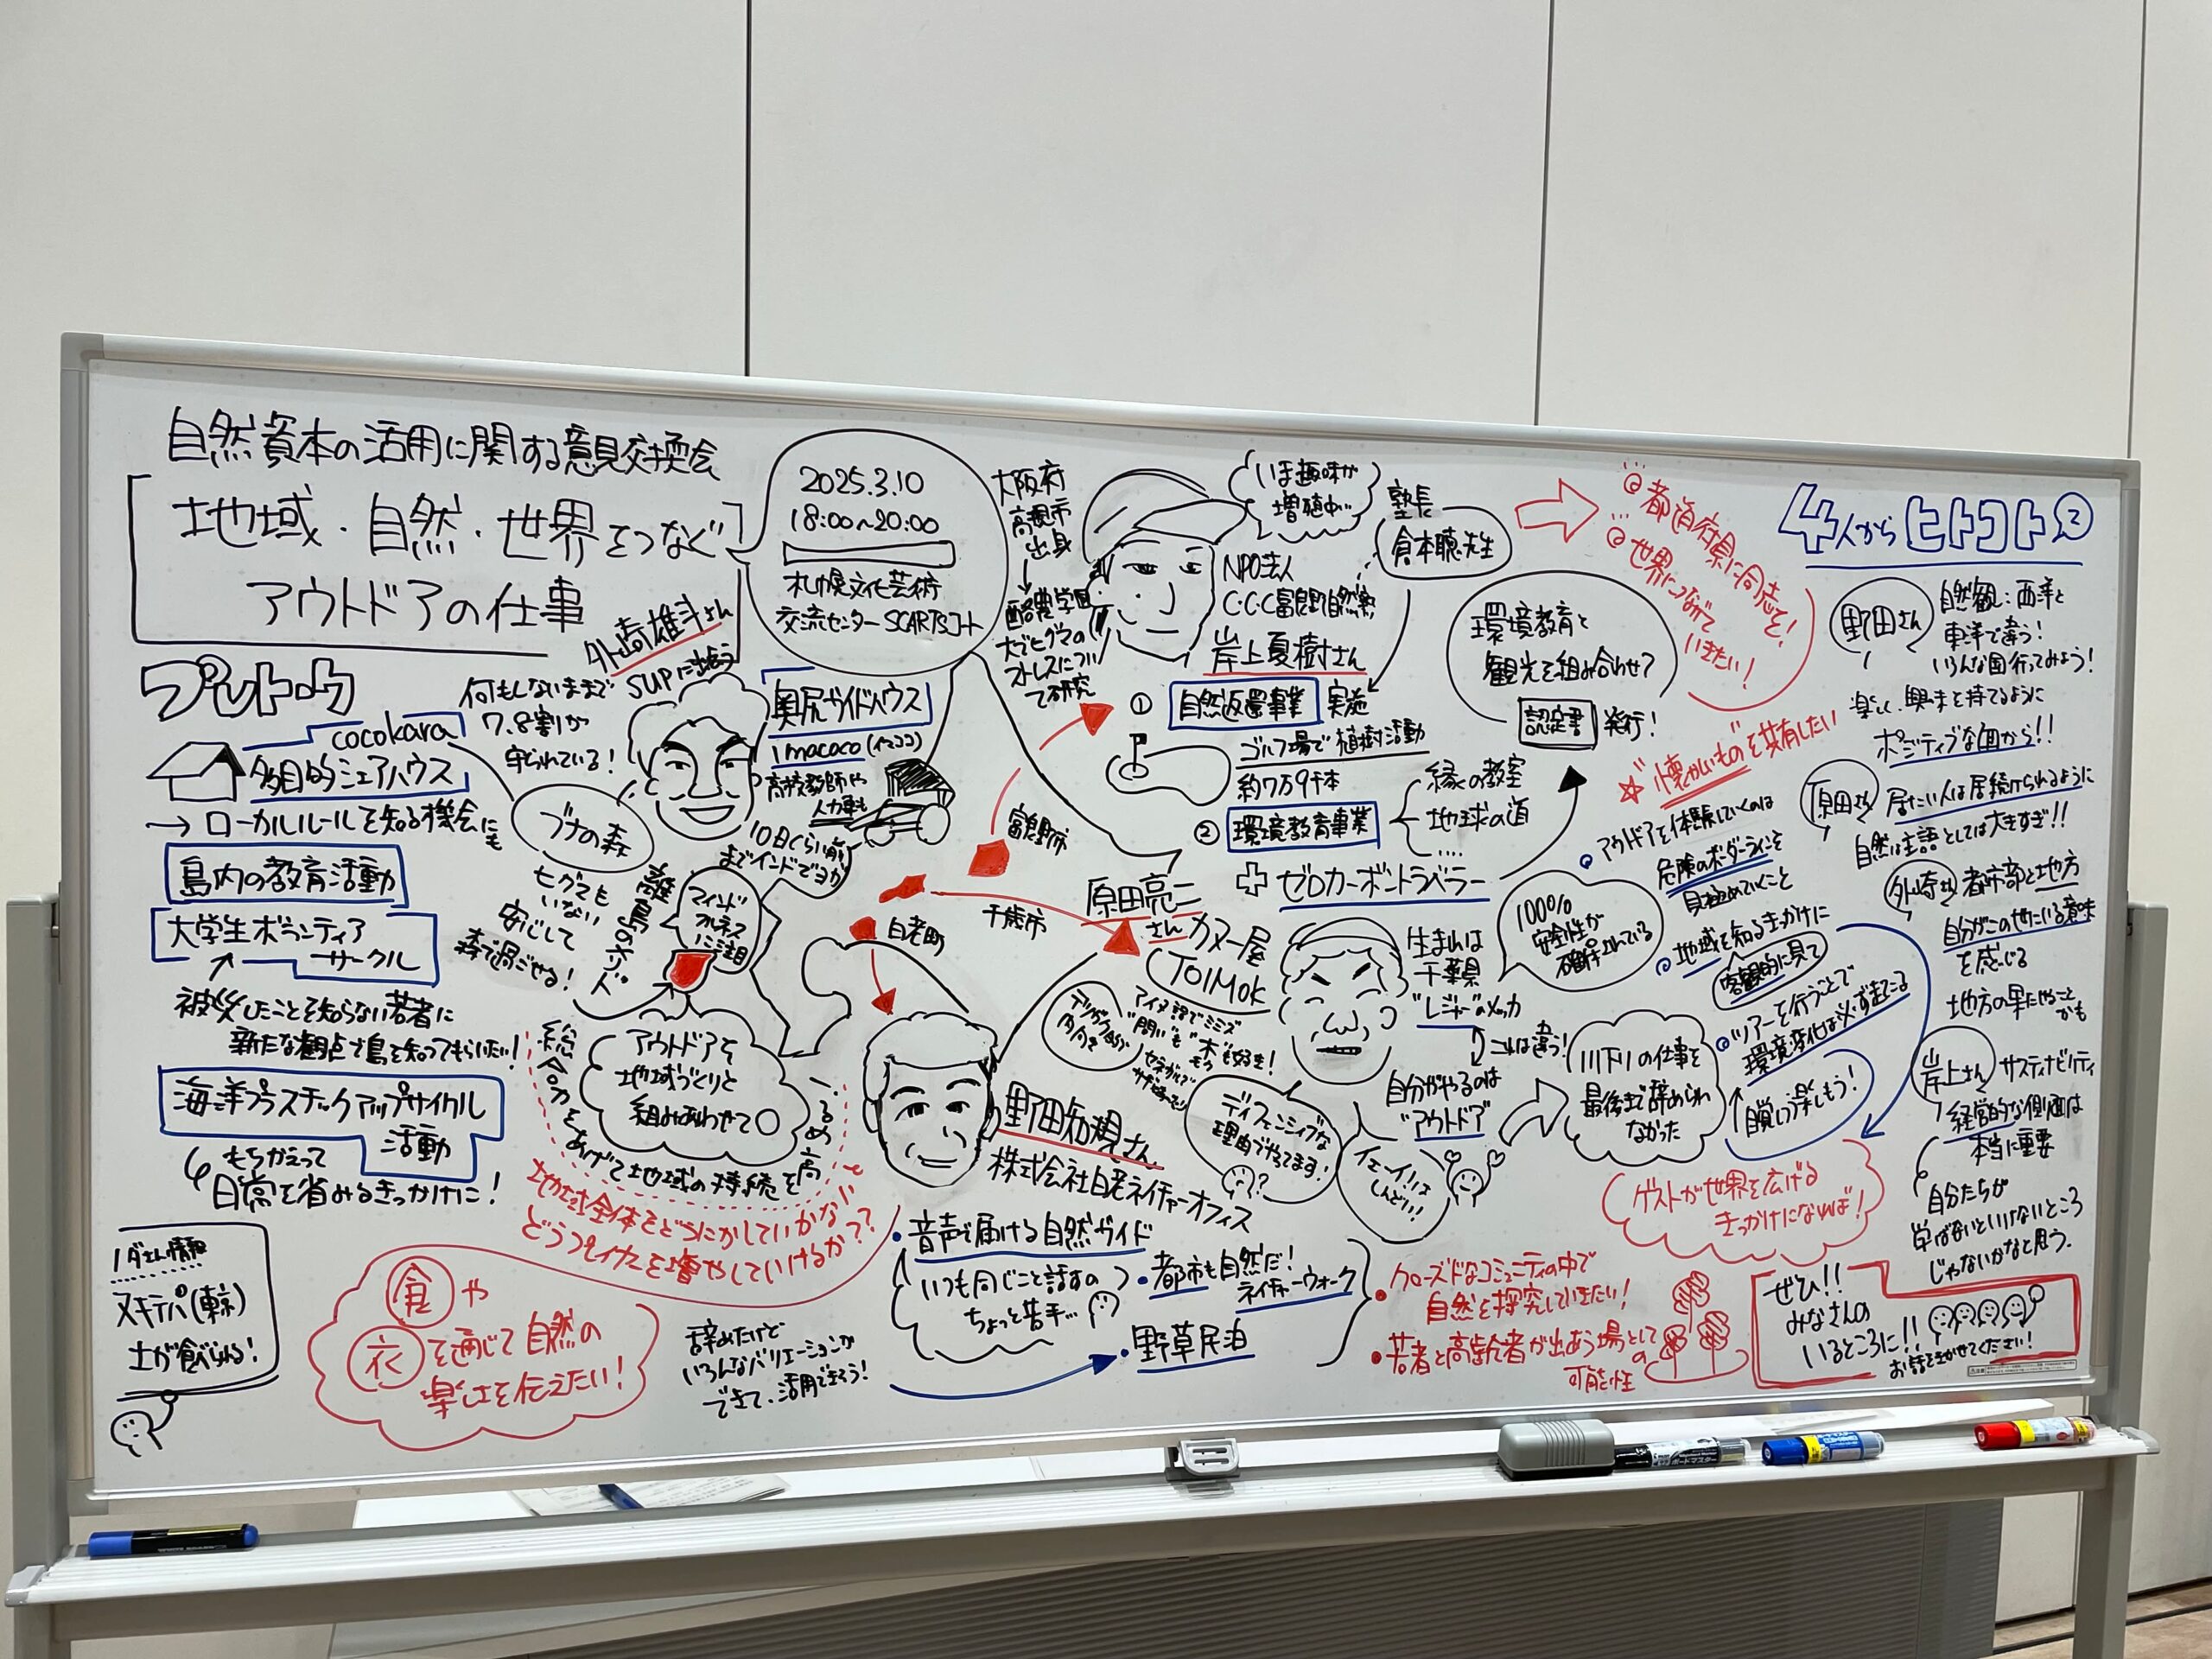 自然資本の活用に関する意見交換会
地域・自然・世界をつなぐ
アウトドアの仕事
2025.3.10
18:00~20:00
札幌文化芸術
交流センター SCARTSコート
プレトーク
cocokara
多目的シェアハウス
→ ローカルルールを知る機会にも
島内の教育活動
大学生ボランティア
サークル
被災したことを知らない若者に
新たな観点で島を知ってもらいたい!
海洋プラスチックアップサイクル
活動
もちかえって
日常を省みるきっかけに!
ノダさん情報
ヌキテパ(東京)
土が食べられる!
外崎雄斗さん
SUPに出会う
何もしないままで
7.8割が
守られている!
ブナの森
ヒグマも
いない
安心して
森で過ごせる!
奥尻ガイドハウス
imacoco(イマココ)
高校教師や
人力車も
10日くらい前
までインドでヨガ
離島のネリド
マインド
フルネス
に注目
アウトドアを
地域づくりと
組みあわせて○
総合力をあげて地域の持続を高める
地域全体をどうにかしていかないと
どうプレイヤーを増やしていけるか??
食や
衣を通じて自然の
楽しさを伝えたい!
大阪府
高槻市
出身
酪農学園
大でヒグマの
ストレスについ
て研究
いま趣味が
増殖中…
NPO法人
C・C・C富良野自然塾
岸上夏樹さん
塾長
倉本聰先生
① 自然返還事業 実施
ゴルフ場で植樹活動
約7万9千本
② 環境教育事業
縁の教室
地球の道
....
ゼロカーボントラベラー
環境教育と
観光を組み合わせ?
認定書 発行!
都道府県に同志を!
世界につなげて
いきたい!
富良野市
千歳市
白老町
原田亮二
さん
カヌー屋
TOIMOK
アイヌ語でミミズ
"閉い"も"木"も好き!
生まれは
千葉県
"レジャー"のメッカ
これは違う!
自分がやるのは
"アウトドア"
100%
安全性が
確保されている
ディフェンシブな
理由でやってます!
イエーイ!!は
しんどい!!
川下りの仕事を
最後まで辞められ
なかった
野田知規さん
株式会社白老ネイチャーオフィス
・音声で届ける自然ガイド
いつも同じこと話すの
ちょっと苦手…
・都市も自然だ!
ネイチャーウォーク
辞めたけど
いろんなバリエーションが
できて、活用できそう!
・野草民泊
・クローズドなコミュニティの中で
自然を探究していきたい!
・若者と高齢者が出あう場として
の
可能性
☆"懐かしいもの"を共有したい
アウトドアを体験していくのは
危険のボーダーラインを
見極めていくこと
地域を知るきっかけに
客観的に見て
ツアーを行うことで
環境変化は必ず起こる
自覚しつつ楽しもう!
ゲストが世界を広げる
きっかけになれば!
4人からヒトコト②
野田さん
自然観:西洋と
東洋で違う!
いろんな国行ってみよう!
楽しく、興味を持てるように
ポジティブな面から!!
原田さん
居たい人は居続けられるように
自然は主語としては大きすぎ!!
外崎さん
都市部と地方
自分がこの世にいる意味
を感じる
地方の果たせること
かも
岸上さん
サスティナビリティ
経営的な側面は
本当に重要
自分たちが
学ばないといけないところ
じゃないかなと思う。
ぜひ!!
みなさんの
いるところに!!
お話をきかせてください!